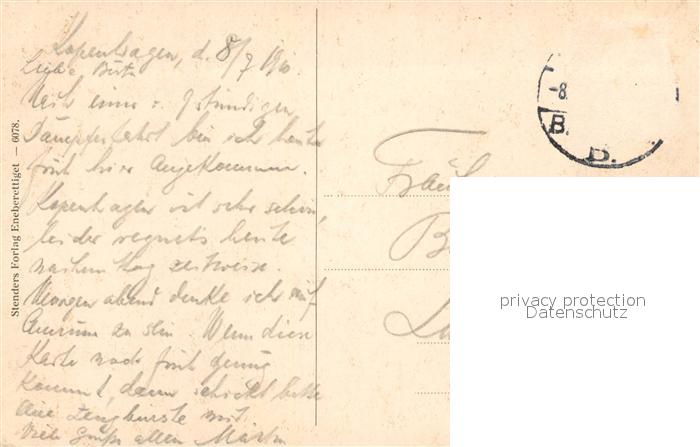 Kopenhagen, d. 8/7 190
Liebe
Nach einer 7 stündigen
Dampferfahrt bin ich heute
früh hier angekommen.
Kopenhagen ist sehr schön,
leider regnets heute
nachmittag zeitweise.
Morgen abend denke ich auf
Amrum zu sein. Wenn diese
Karte noch früh genug
kommt, dann schickt bitte
eine mit.
Viele Grüße allen Martin
Stenders Forlag Eneberettiget — 6078.
-8.
B.
B.
Fräul
privacy protection
Datenschutz